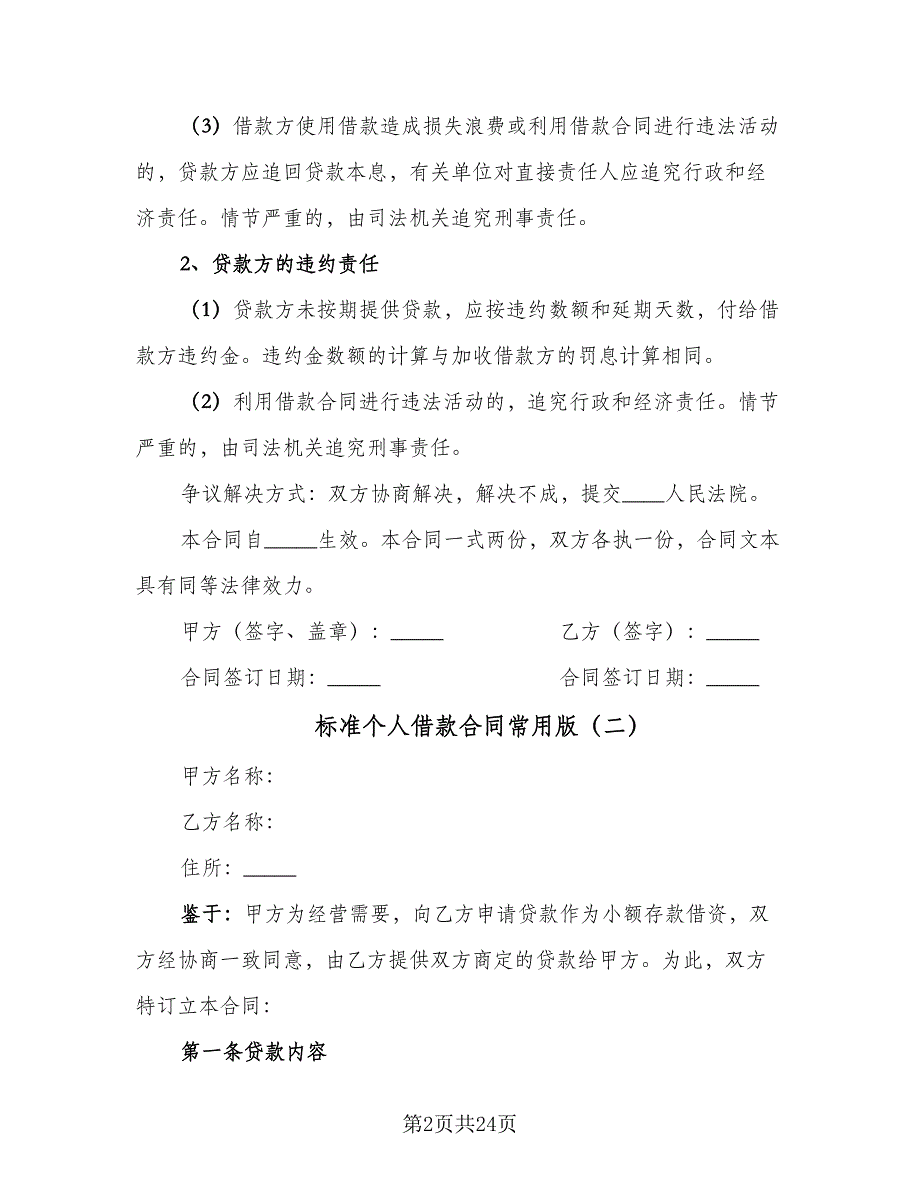 （3）借款方使用借款造成损失浪费或利用借款合同进行违法活动
的，贷款方应追回贷款本息，有关单位对直接责任人应追究行政和经
济责任。情节严重的，由司法机关追究刑事责任。
2、贷款方的违约责任
（1）贷款方未按期提供贷款，应按违约数额和延期天数，付给借
款方违约金。违约金数额的计算与加收借款方的罚息计算相同。
（2）利用借款合同进行违法活动的，追究行政和经济责任。情节
严重的，由司法机关追究刑事责任。
争议解决方式：双方协商解决，解决不成，提交____人民法院。
本合同自_____生效。本合同一式两份，双方各执一份，合同文本
具有同等法律效力。
甲方（签字、盖章）：_____ 乙方（签字）：_____
合同签订日期：_____ 合同签订日期：_____
标准个人借款合同常用版（二）
甲方名称：
乙方名称：
住所：_____
鉴于：甲方为经营需要，向乙方申请贷款作为小额存款借资，双
方经协商一致同意，由乙方提供双方商定的贷款给甲方。为此，双方
特订立本合同：
第一条贷款内容
第2页共24页